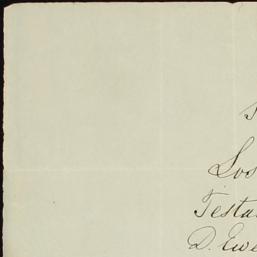 Los
Testa
D. Ewe